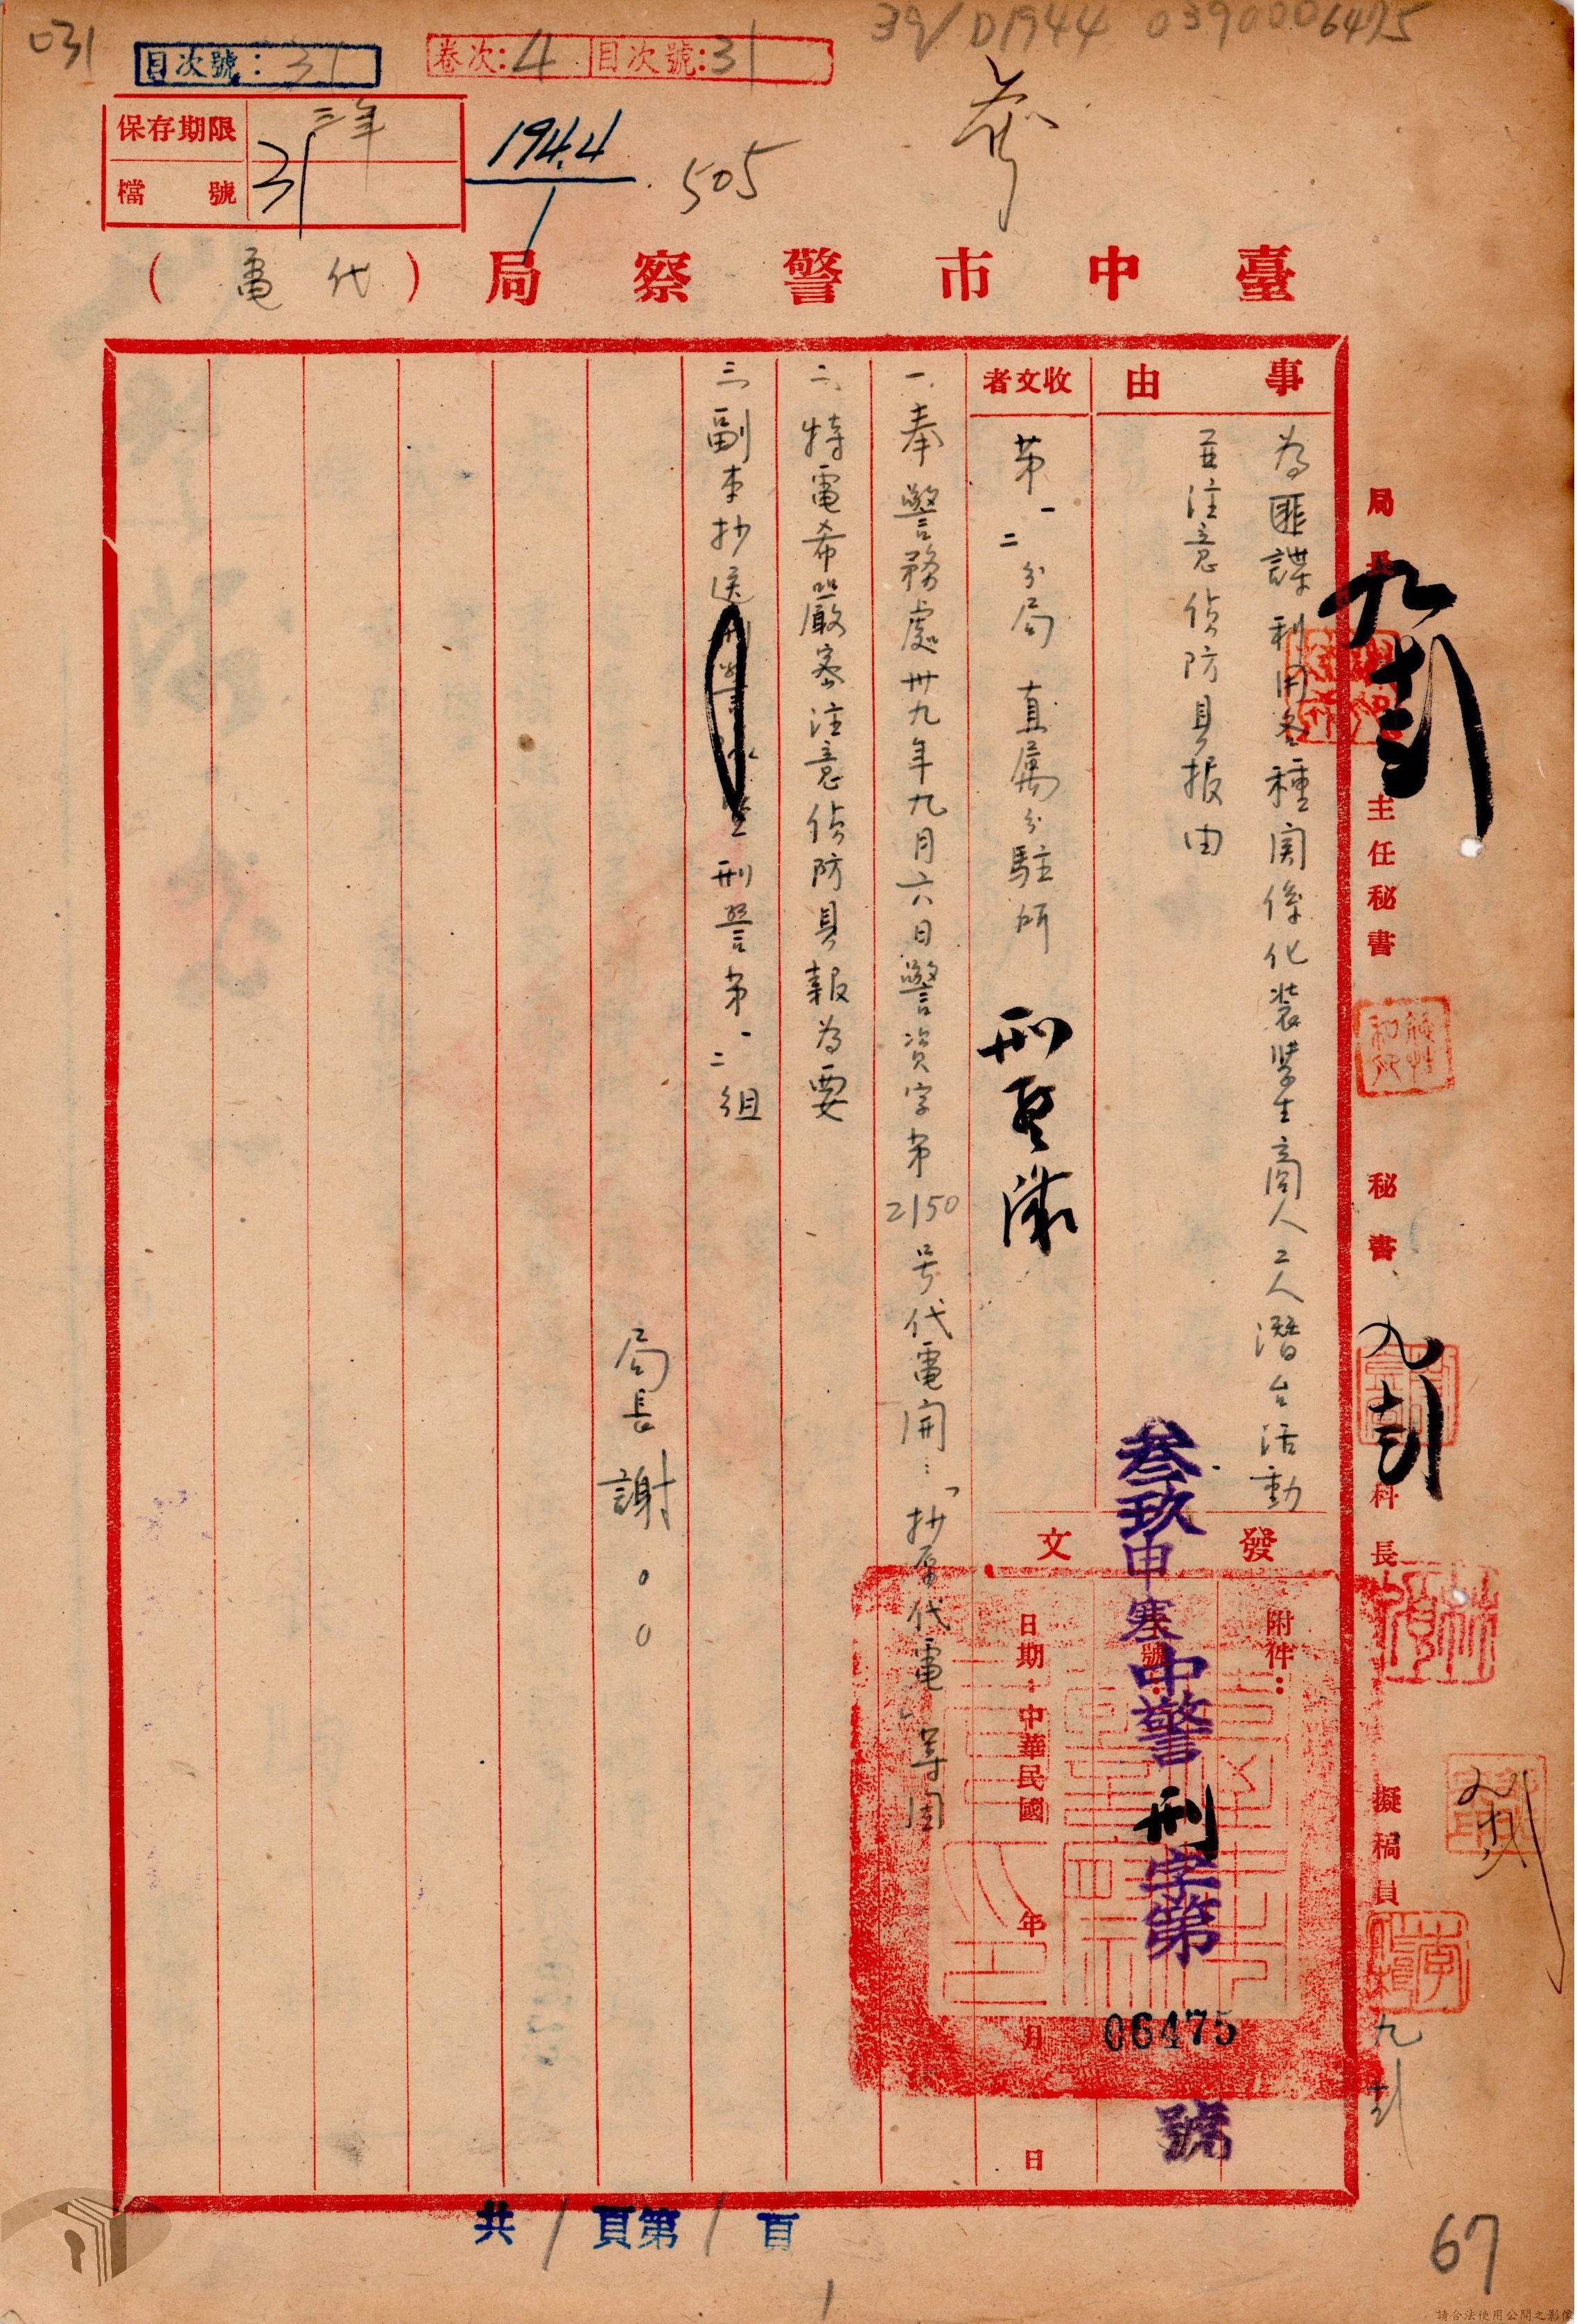 031
39/D1944 0390006475
目次號：31
卷次：4 目次號：31
保存期限 三年
檔號 31
194.4
1
505
臺中市警察局（代電）
事由
為匪諜利用各種関係化裝學生商人工人潛台活動
並注意偵防具报由
收文者
第一二分局 直属分駐所
發文
附件：
號：
叁玖申寒中警刑字第06475號
日期：中華民國 年 月 日
一、奉警務處卅九年九月六日警資字第2150号代電開：「抄原代電」等因
二、特電希嚴密注意偵防具報為要
三、副本抄送刑警第一二組
局長謝○○
局長
主任秘書
秘書
科長
擬稿員
共1頁第1頁
1
67
請合法使用公開之影像